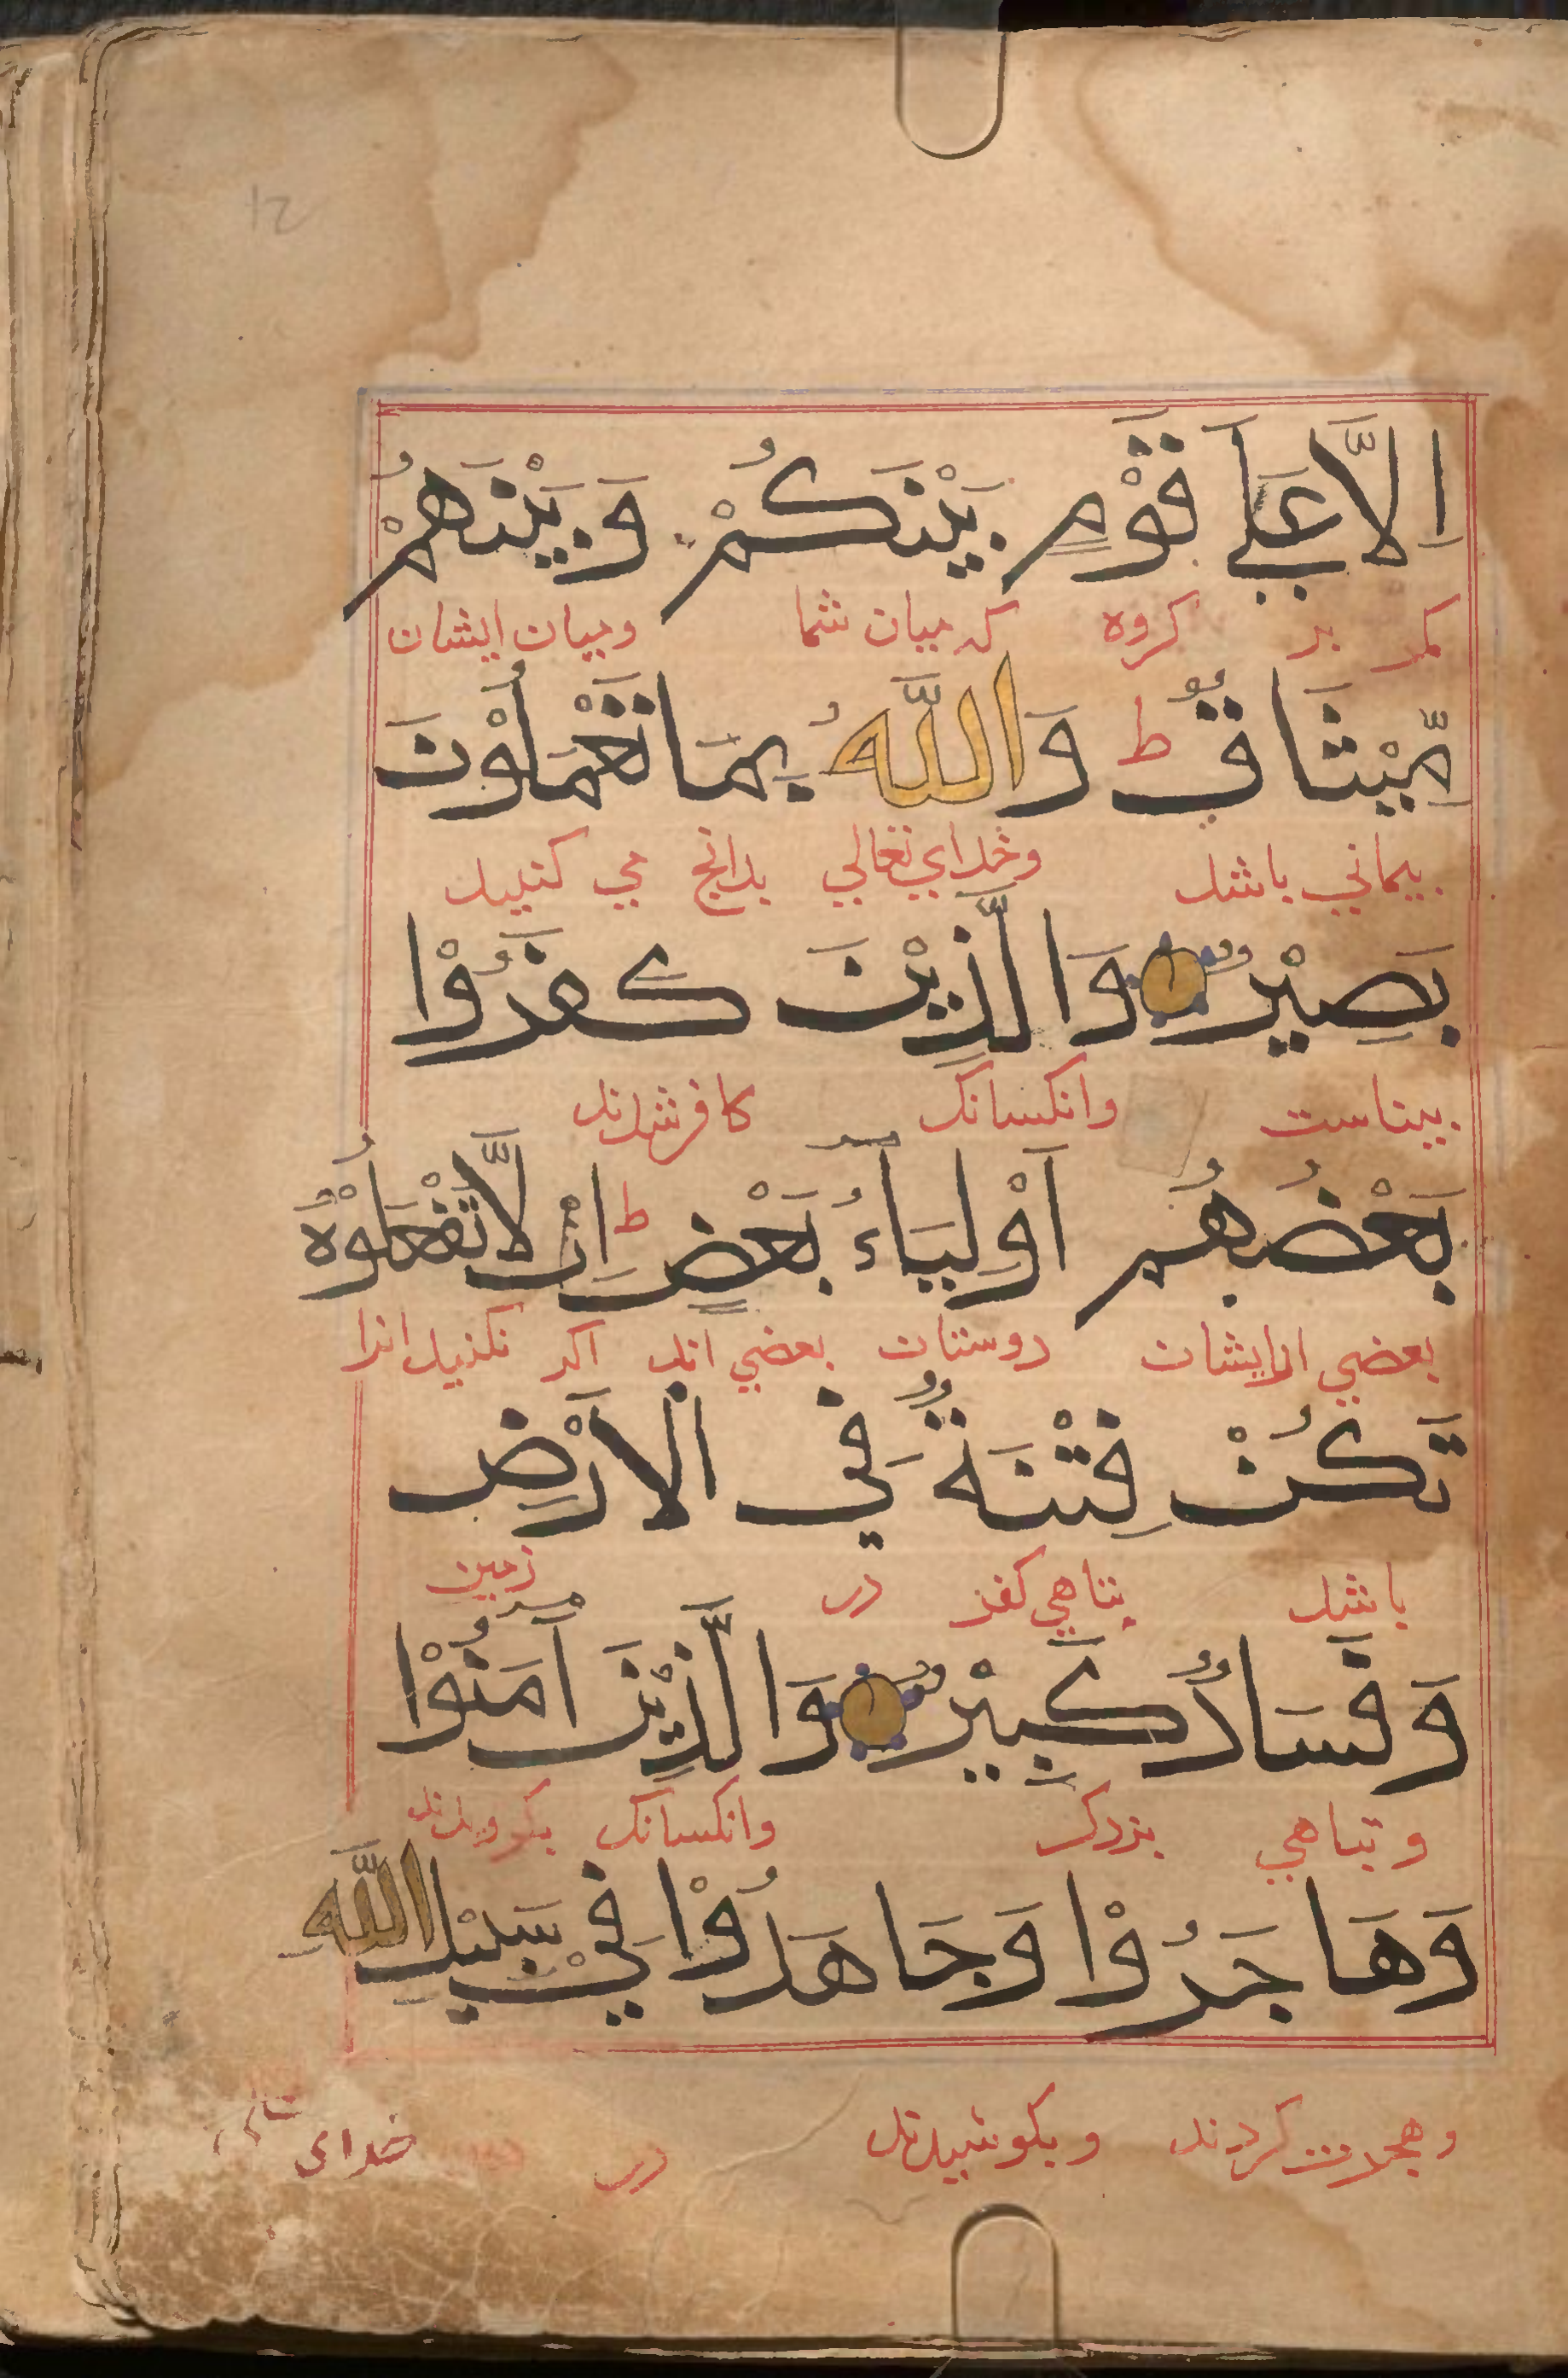 12
اِلَّا عَلٰي قَوْمٍ بَيْنَكُمْ وَبَيْنَهُمْ
مكر بر كروه كه ميان شما وميان ايشان
مِّيْثَاقٌ ط وَاللّٰهُ بِمَا تَعْمَلُوْنَ
پيماني باشد وخداي تعالي بدانچ مي كنيد
بَصِيْرٌ وَالَّذِيْنَ كَفَرُوْا
بيناست وانكسانك كافر شدند
بَعْضُهُمْ اَوْلِيَاءُ بَعْضٍ ط اِنْ لَّا تَفْعَلُوْهُ
بعضي از ايشان دوستان بعضي اند اكر نكنيد انرا
تَكُنْ فِتْنَةٌ فِي الْاَرْضِ
باشد تباهي كفر در زمين
وَفَسَادٌ كَبِيْرٌ وَالَّذِيْنَ اٰمَنُوْا
و تباهي بزرك وانكسانك بكرويدند
وَهَاجَرُوْا وَجَاهَدُوْا فِيْ سَبِيْلِ اللّٰهِ
وهجرت كردند وبكوشيدند در خداى تعالى